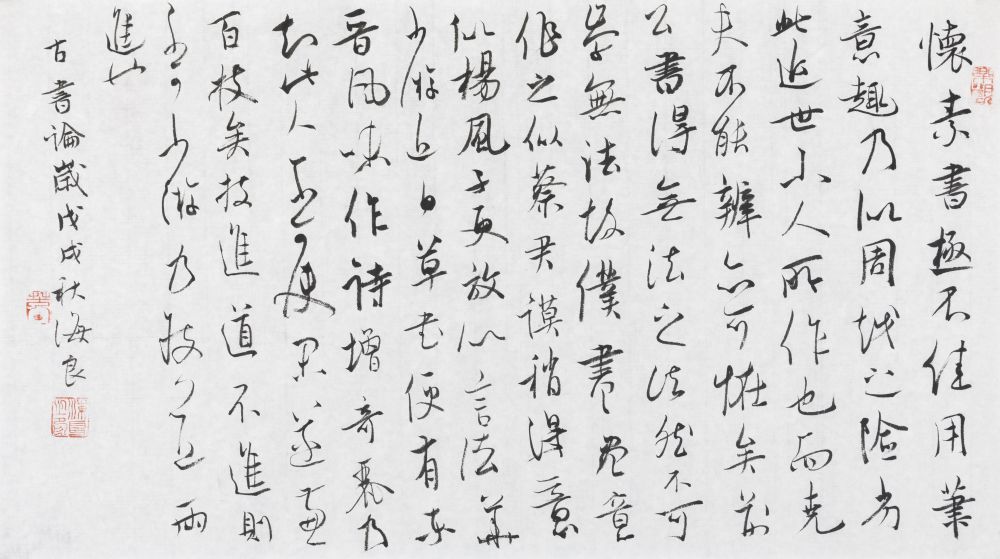 懷素書極不佳用筆
意趣乃似周越之險劣
此近世小人所作也而堯
夫不能辨亦可怪矣荊
公書得無法之法然不可
學無法故僕書盡意
作之似蔡君謨稍得意
似楊風子更放似言法華
少游近日草書便有東
晉風味作詩增奇麗乃
知此人不可使閑遂兼
百技矣技進道不進則
不可少游乃技道兩
進也
古書論歲戊戌秋海良